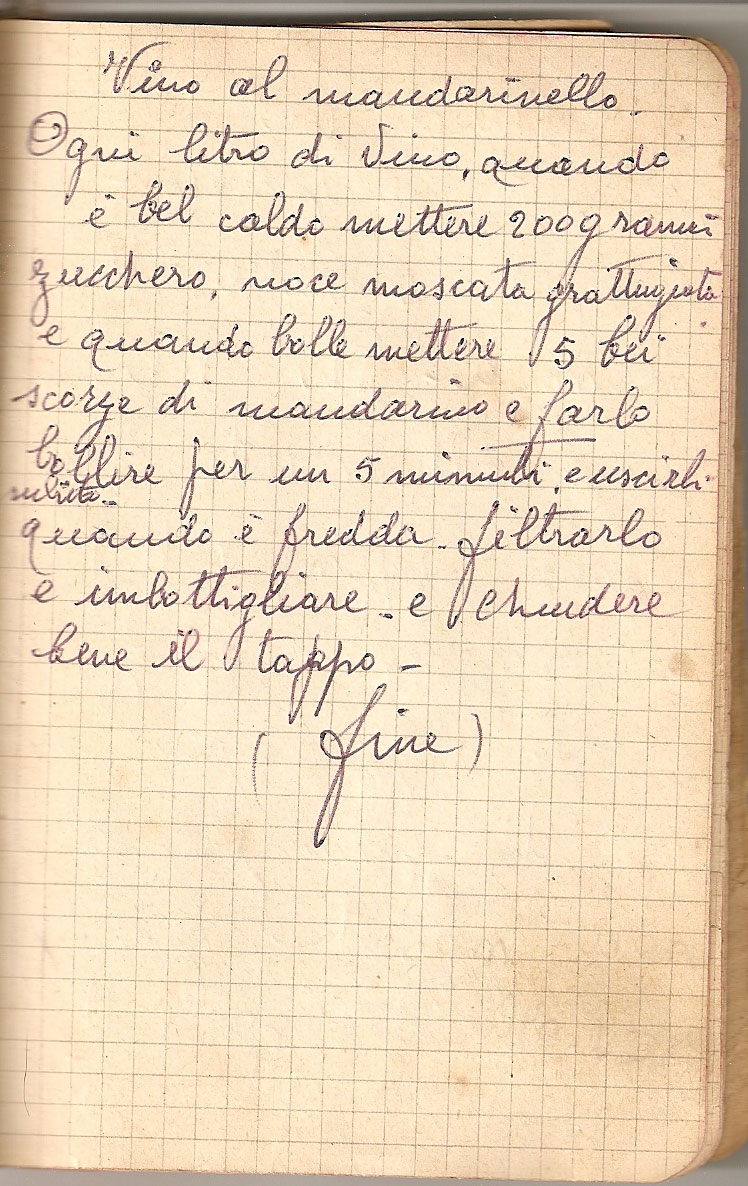 Vino al mandarinello.
Ogni litro di Vino, quando
è bel caldo mettere 200 grammi
zucchero, noce moscata grattugiata
e quando bolle mettere 5 bei
scorze di mandarino e farlo
bollire per un 5 minuti, e uscirli
subito -
quando è fredda - filtrarlo
e imbottigliare - e chiudere
bene il tappo -
( fine )